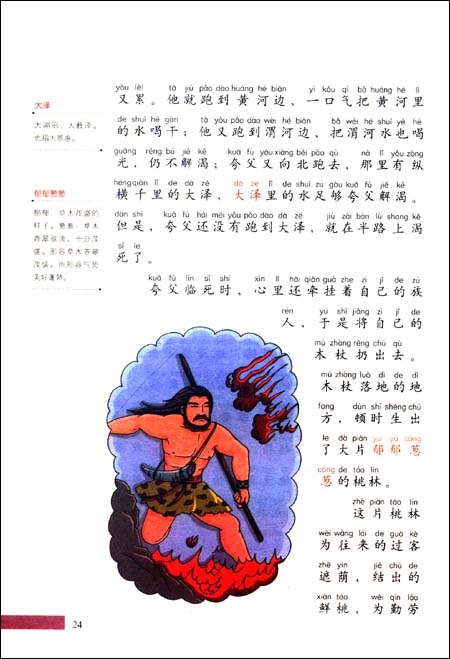 yòu lèi tā jiù pǎo dào huáng hé biān yì kǒu qì bǎ huáng hé lǐ
又累。他就跑到黄河边,一口气把黄河里
de shuǐ hē gān tā yòu pǎo dào wèi hé biān bǎ wèi hé shuǐ yě hē
的水喝干;他又跑到渭河边,把渭河水也喝
guāng réng bù jiě kě kuā fù yòu xiàng běi pǎo qù nà lǐ yǒu zòng
光,仍不解渴;夸父又向北跑去,那里有纵
héng qiān lǐ de dà zé dà zé lǐ de shuǐ zú gòu kuā fù jiě kě
横千里的大泽,大泽里的水足够夸父解渴。
dàn shì kuā fù hái méi yǒu pǎo dào dà zé jiù zài bàn lù shang kě
但是,夸父还没有跑到大泽,就在半路上渴
sǐ le
死了。
kuā fù lín sǐ shí xīn lǐ hái qiān guà zhe zì jǐ de zú
夸父临死时,心里还牵挂着自己的族
rén yú shì jiāng zì jǐ de
人,于是将自己的
mù zhàng rēng chū qù
木杖扔出去。
mù zhàng luò dì de dì
木杖落地的地
fang dùn shí shēng chū
方,顿时生出
le dà piàn yù yù cōng
了大片郁郁葱
cōng de táo lín
葱的桃林。
zhè piàn táo lín
这片桃林
wèi wǎng lái de guò kè
为往来的过客
zhē yīn jiē chū de
遮荫,结出的
xiān táo wèi qín láo
鲜桃,为勤劳
大泽
大湖沼、大薮泽。
也指大恩惠。
郁郁葱葱
郁郁:草木茂盛的
样子。葱葱:草木
青翠 十分茂
盛。形容草木苍翠
茂盛。也形容气势
美好蓬勃。
24